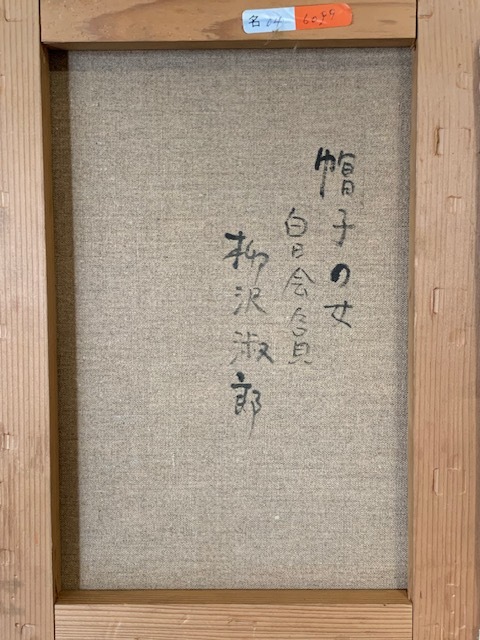 名 04 6099
帽子の女
白日会会員
柳沢淑郎